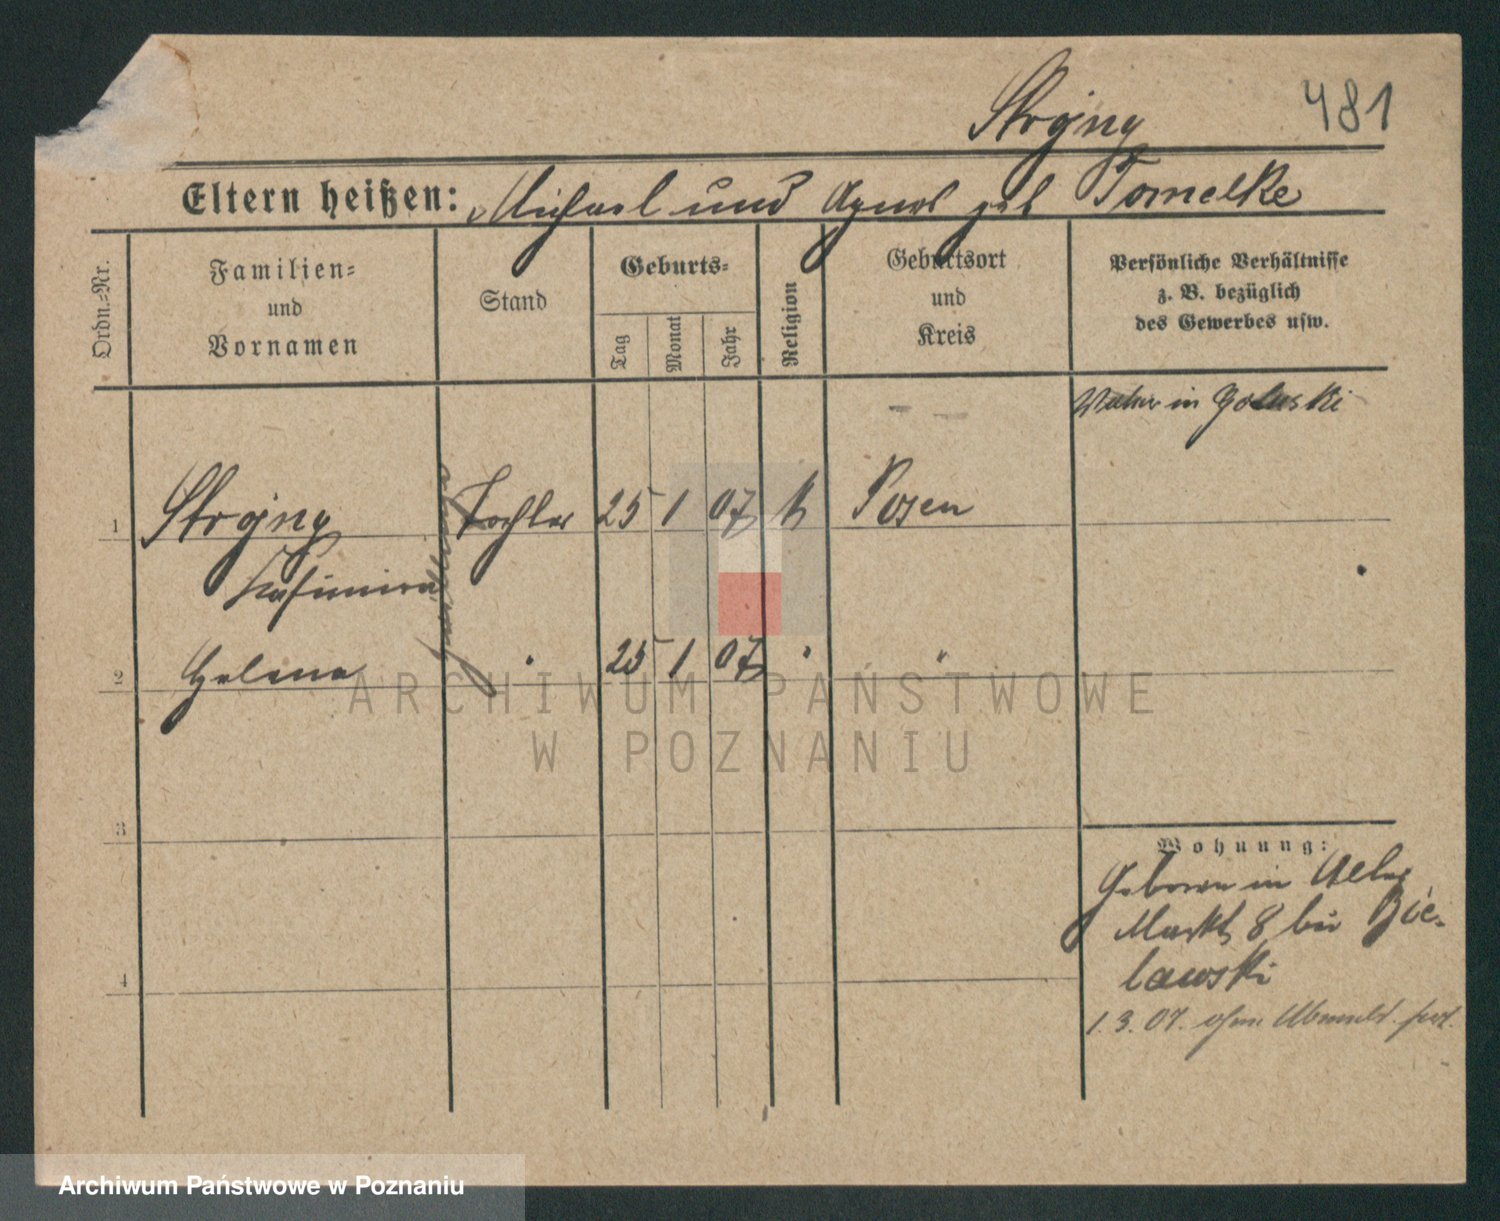 Strozny 481
Eltern heißen: Michael und Agnes geb Tomelke
Ordn.=Nr.
Familien=
und
Vornamen
Stand
Geburts=
Tag
Monat
Jahr
Religion
Geburtsort
und
Kreis
Persönliche Verhältnisse
z. B. bezüglich
des Gewerbes usw.
Vater in
1 Tochter 25 1 07 k Posen
Kasimira
2 Helena " 25 1 07 " "
3
Wohnung:
Geboren in Alter
Markt 8 bei Bie-
lawski
4
1.3.07. ohne Abmeld.
ARCHIWUM PAŃSTWOWE
W POZNANIU
Archiwum Państwowe w Poznaniu